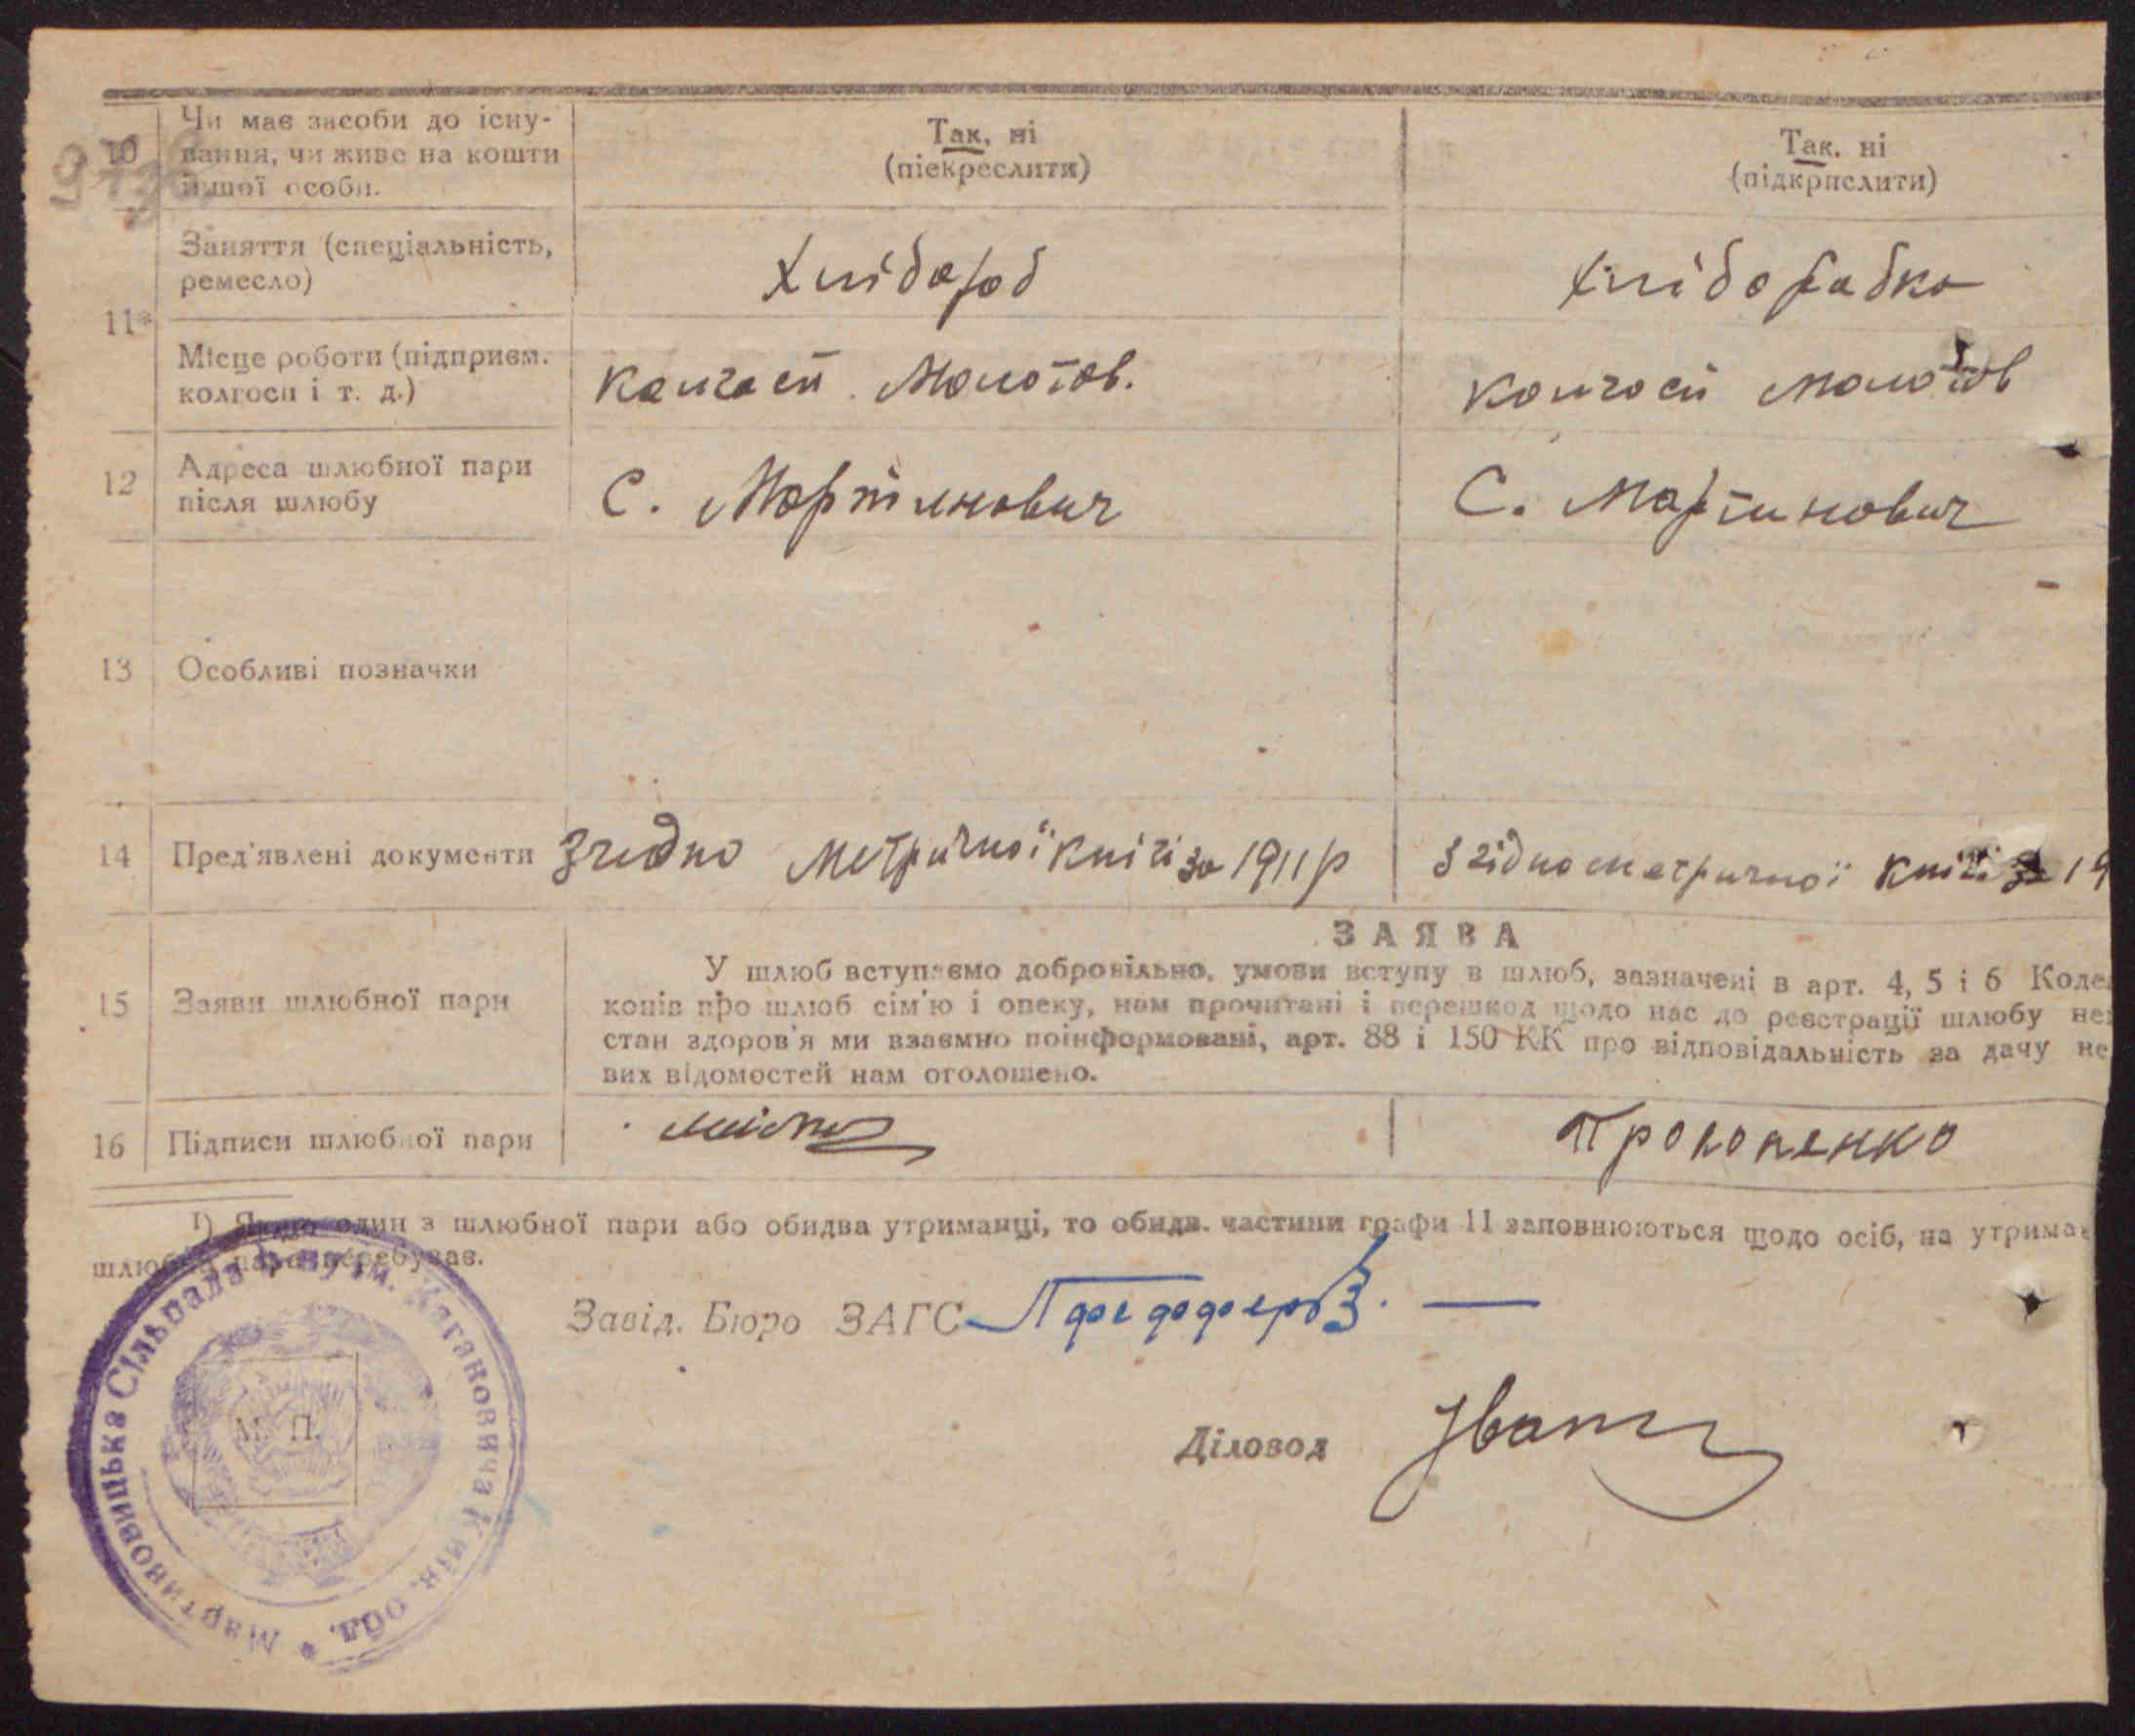 10
Чи має засоби до існу-
вання, чи живе на кошти
іншої особи.
Так, ні
(піекреслити)
Так, ні
(підкрпслити)
11*
Заняття (спеціальність,
ремесло)
Хлібороб
Хліборабка
Місце роботи (підприєм.
колгосп і т. д.)
Колгосп Молотов.
Колгосп Молотов
12
Адреса шлюбної пари
після шлюбу
С. Мартинович
С. Мартинович
13
Особливі позначки
14
Пред'явлені документи
Згидно Метричної Кніги за 1911 р
Згідно метричної Кніги за 19
15
Заяви шлюбної пари
ЗАЯВА
У шлюб вступаємо добровільно, умови вступу в шлюб, зазначені в арт. 4, 5 і 6 Коде
конів про шлюб сім'ю і опеку, нам прочитані і перешкод щодо нас до реєстрації шлюбу не
стан здоров'я ми взаємно поінформовані, арт. 88 і 150 КК про відповідальність за дачу не
вих відомостей нам оголошено.
16
Підписи шлюбної пари
Прокопенко
1) Якщо один з шлюбної пари або обидва утриманці, то обидв. частини графи 11 заповнюються щодо осіб, на утриман
шлюбна пара перебуває.
Завід. Бюро ЗАГС
Діловод
М. П.
Мартиновицька Сільрада Р-ну ім. Кагановича Київ. обл.